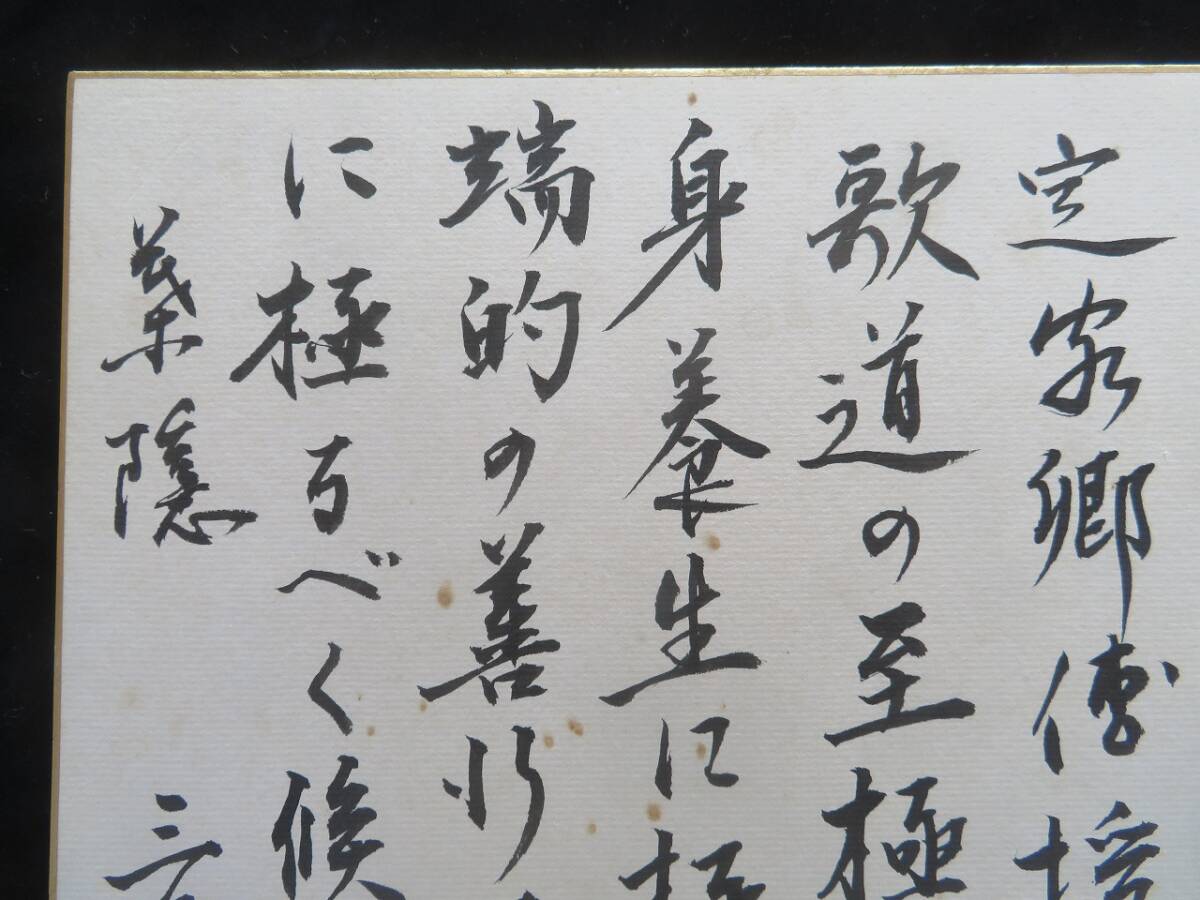 定家卿傳授
歌道の至極
身養生に極
端的の善行
に極るべく候
葉隠 三